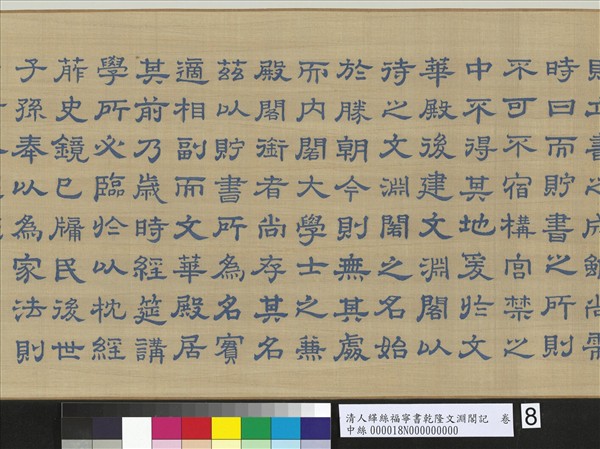 書之成雖尚需
時日而貯書之所則
不可不宿構宮禁之
中不得其地爰於文
華殿後建文淵閣以
待之文淵閣之名始
於勝朝今則無其處
而內閣大學士之兼
殿閣銜者尚存其名
茲以貯書所為名實
適相副而文華殿居
其前乃歲時經筵講
學所必臨於以枕經
葄史鏡已牖民後世
子孫奉以為家法則
清人緙絲福寧書乾隆文淵閣記 卷
中絲000018N000000000
8